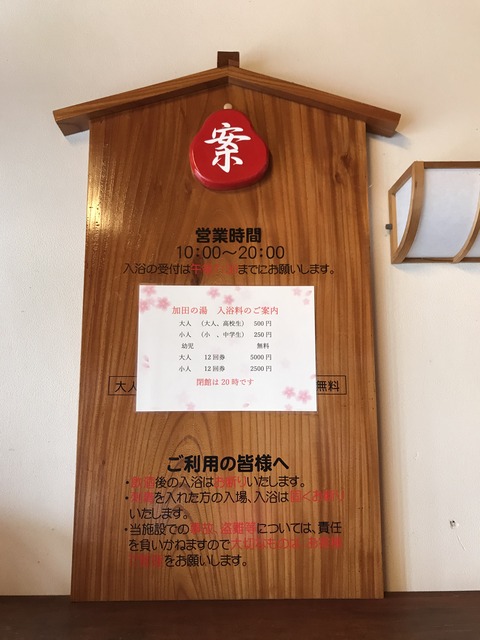 案
営業時間
10:00～20:00
入浴の受付は までにお願いします。
加田の湯 入浴料のご案内
大人 （大人、高校生） 500円
小人 （小 、中学生） 250円
幼児 無料
大人 12回券 5000円
小人 12回券 2500円
閉館は20時です
大人 無料
ご利用の皆様へ
・飲酒後の入浴はお断りいたします。
・ を入れた方の入場、入浴は固くお断り
いたします。
・当施設での事故、盗難等については、責任
を負いかねますので大切なものは、
をお願いします。